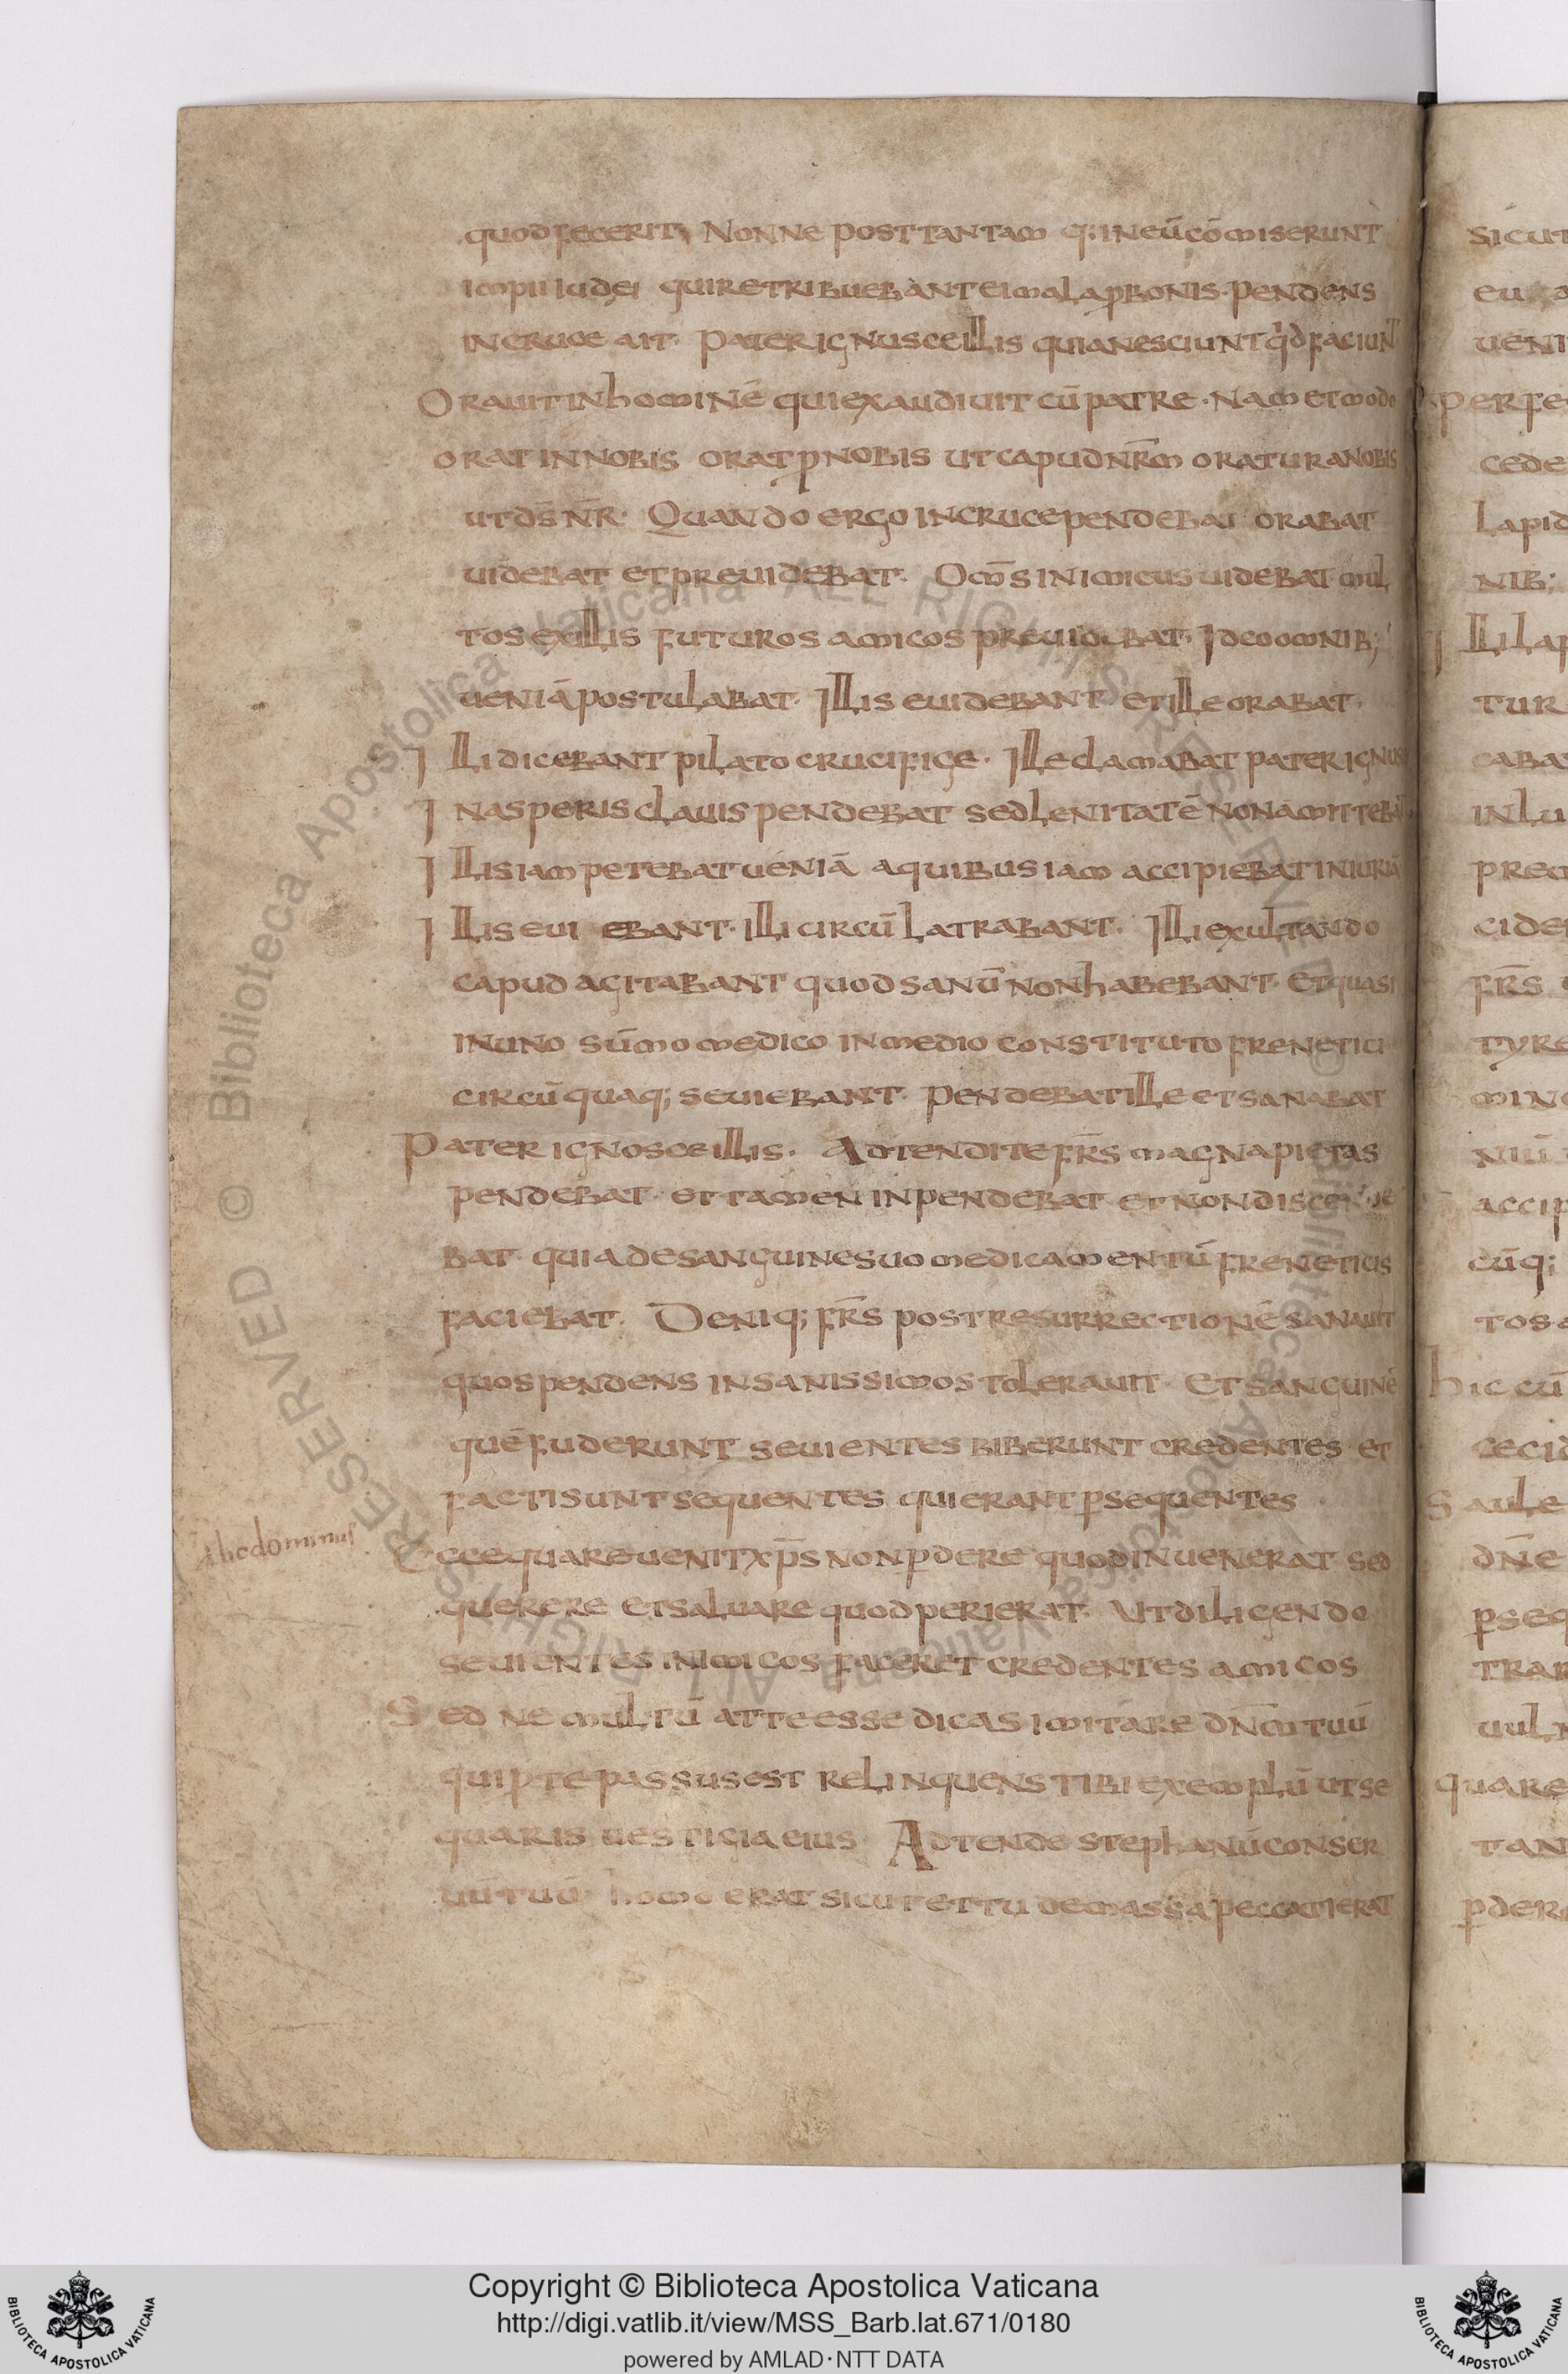 quod fecerit, Nonne post tantam q; in eū cōmiserunt
impii iudei qui retribuebant ei mala p̱ bonis. pendens
in cruce ait. pater ignusce illis quia nesciunt qd faciunt
Orauit in homine qui exaudiuit cū patre. Nam et modo
orat in nobis orat p̱ nobis ut capud nr̄m oratur a nobis
ut ds̄ nr̄. Quando ergo in cruce pendebat orabat
uidebat et preuidebat. Om̄s inimicus uidebat mul
tos ex illis futuros amicos preuidebat. Ideo omnib;
ueniā postulabat. Illi seuidebant et ille orabat.
Illi dicebant pilato crucifige. Ille clamabat pater ignus
In asperis clauis pendebat sed lenitatē non amittebat
Illis iam petebat ueniā a quibus iam accipiebat iniuriā
Illi seui ebant. illi circū latrabant. Illi exultando
capud agitabant quod sanū non habebant. Et quasi
in uno sūmo medico in medio constituto frenetici
circū quaq; seuiebant. pendebat ille et sanabat
Pater ignosce illis. Adtendite frs̄ magna pietas
pendebat. et tamen inpendebat et non discen de
bat. quia de sanguine suo medicamentū freneticis
faciebat. Deniq; frs̄ post resurrectionē sanauit
quos pendens insanissimos tolerauit. Et sanguinē
quē fuderunt seuientes biberunt credentes et
facti sunt sequentes qui erant p̱sequentes
Ecce quare uenit xps̄ non p̱dere quod inuenerat sed
querere et saluare quod perierat. Ut diligendo
seuientes inimicos faceret credentes amicos
Sed ne multū at te esse dicas imitare dn̄m tuū
qui p̱ te passus est relinquens tibi exemplū ut se
quaris uestigia eius. Adtende stephanū conser
uū tuū homo erat sicut et tu de massa peccati erat
dominus
sicut
eu
ueni
perfe
cede
lapid
nib;
Illi lap
tur
caba
in lu
prem
cide
frs̄
tyre
niū
accip
cūq;
tos
hic cū
cecid
Saule
dn̄e
p̱seq
trar
uuln
quare
tan
p̱dere
© Biblioteca Apostolica Vaticana ALL RIGHTS RESERVED
© Biblioteca Apostolica Vaticana ALL RIGHTS RESERVED
Copyright © Biblioteca Apostolica Vaticana
http://digi.vatlib.it/view/MSS_Barb.lat.671/0180
powered by AMLAD・NTT DATA
BIBLIOTECA APOSTOLICA VATICANA
BIBLIOTECA APOSTOLICA VATICANA